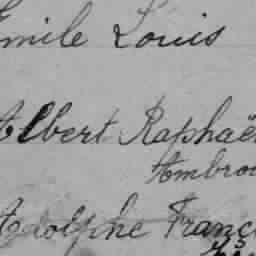 Emile Louis
Albert Raphaë
Ambro
Adolphe Franç